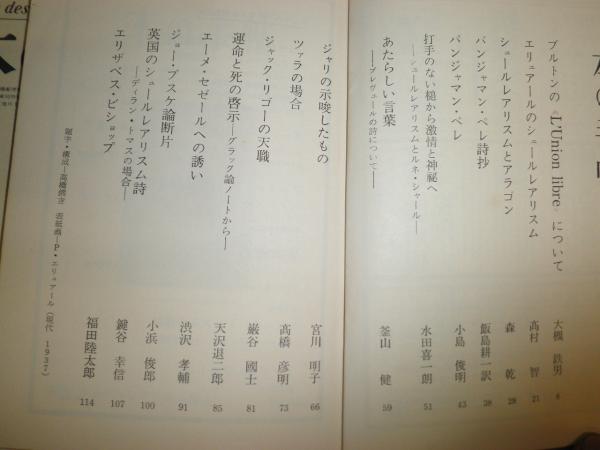 ブルトンの《L'Union libre》について 大槻 鉄男 6
エリュアールのシュールレアリスム 高村 智 21
シュールレアリスムとアラゴン 森 乾 28
バンジャマン・ペレ詩抄 飯島耕一訳 38
バンジャマン・ペレ 小島 俊明 43
打手のない槌から激情と神秘へ
――シュールレアリスムとルネ・シャール―― 水田喜一朗 51
あたらしい言葉
――プレヴェールの詩について―― 釜山 健 59
ジャリの示唆したもの 宮川 明子 66
ツァラの場合 高橋 彦明 73
ジャック・リゴーの天職 巌谷 國士 81
運命と死の啓示――グラック論ノートから―― 天沢退二郎 85
エーメ・セゼールへの誘い 渋沢 孝輔 91
ジョー・ブスケ論断片 小浜 俊郎 100
英国のシュールレアリスム詩
――ディラン・トマスの場合―― 鍵谷 幸信 107
エリザベス・ビショップ 福田陸太郎 114
題字・構成―高橋 表紙画―P・エリュアール(現代 1937)
des